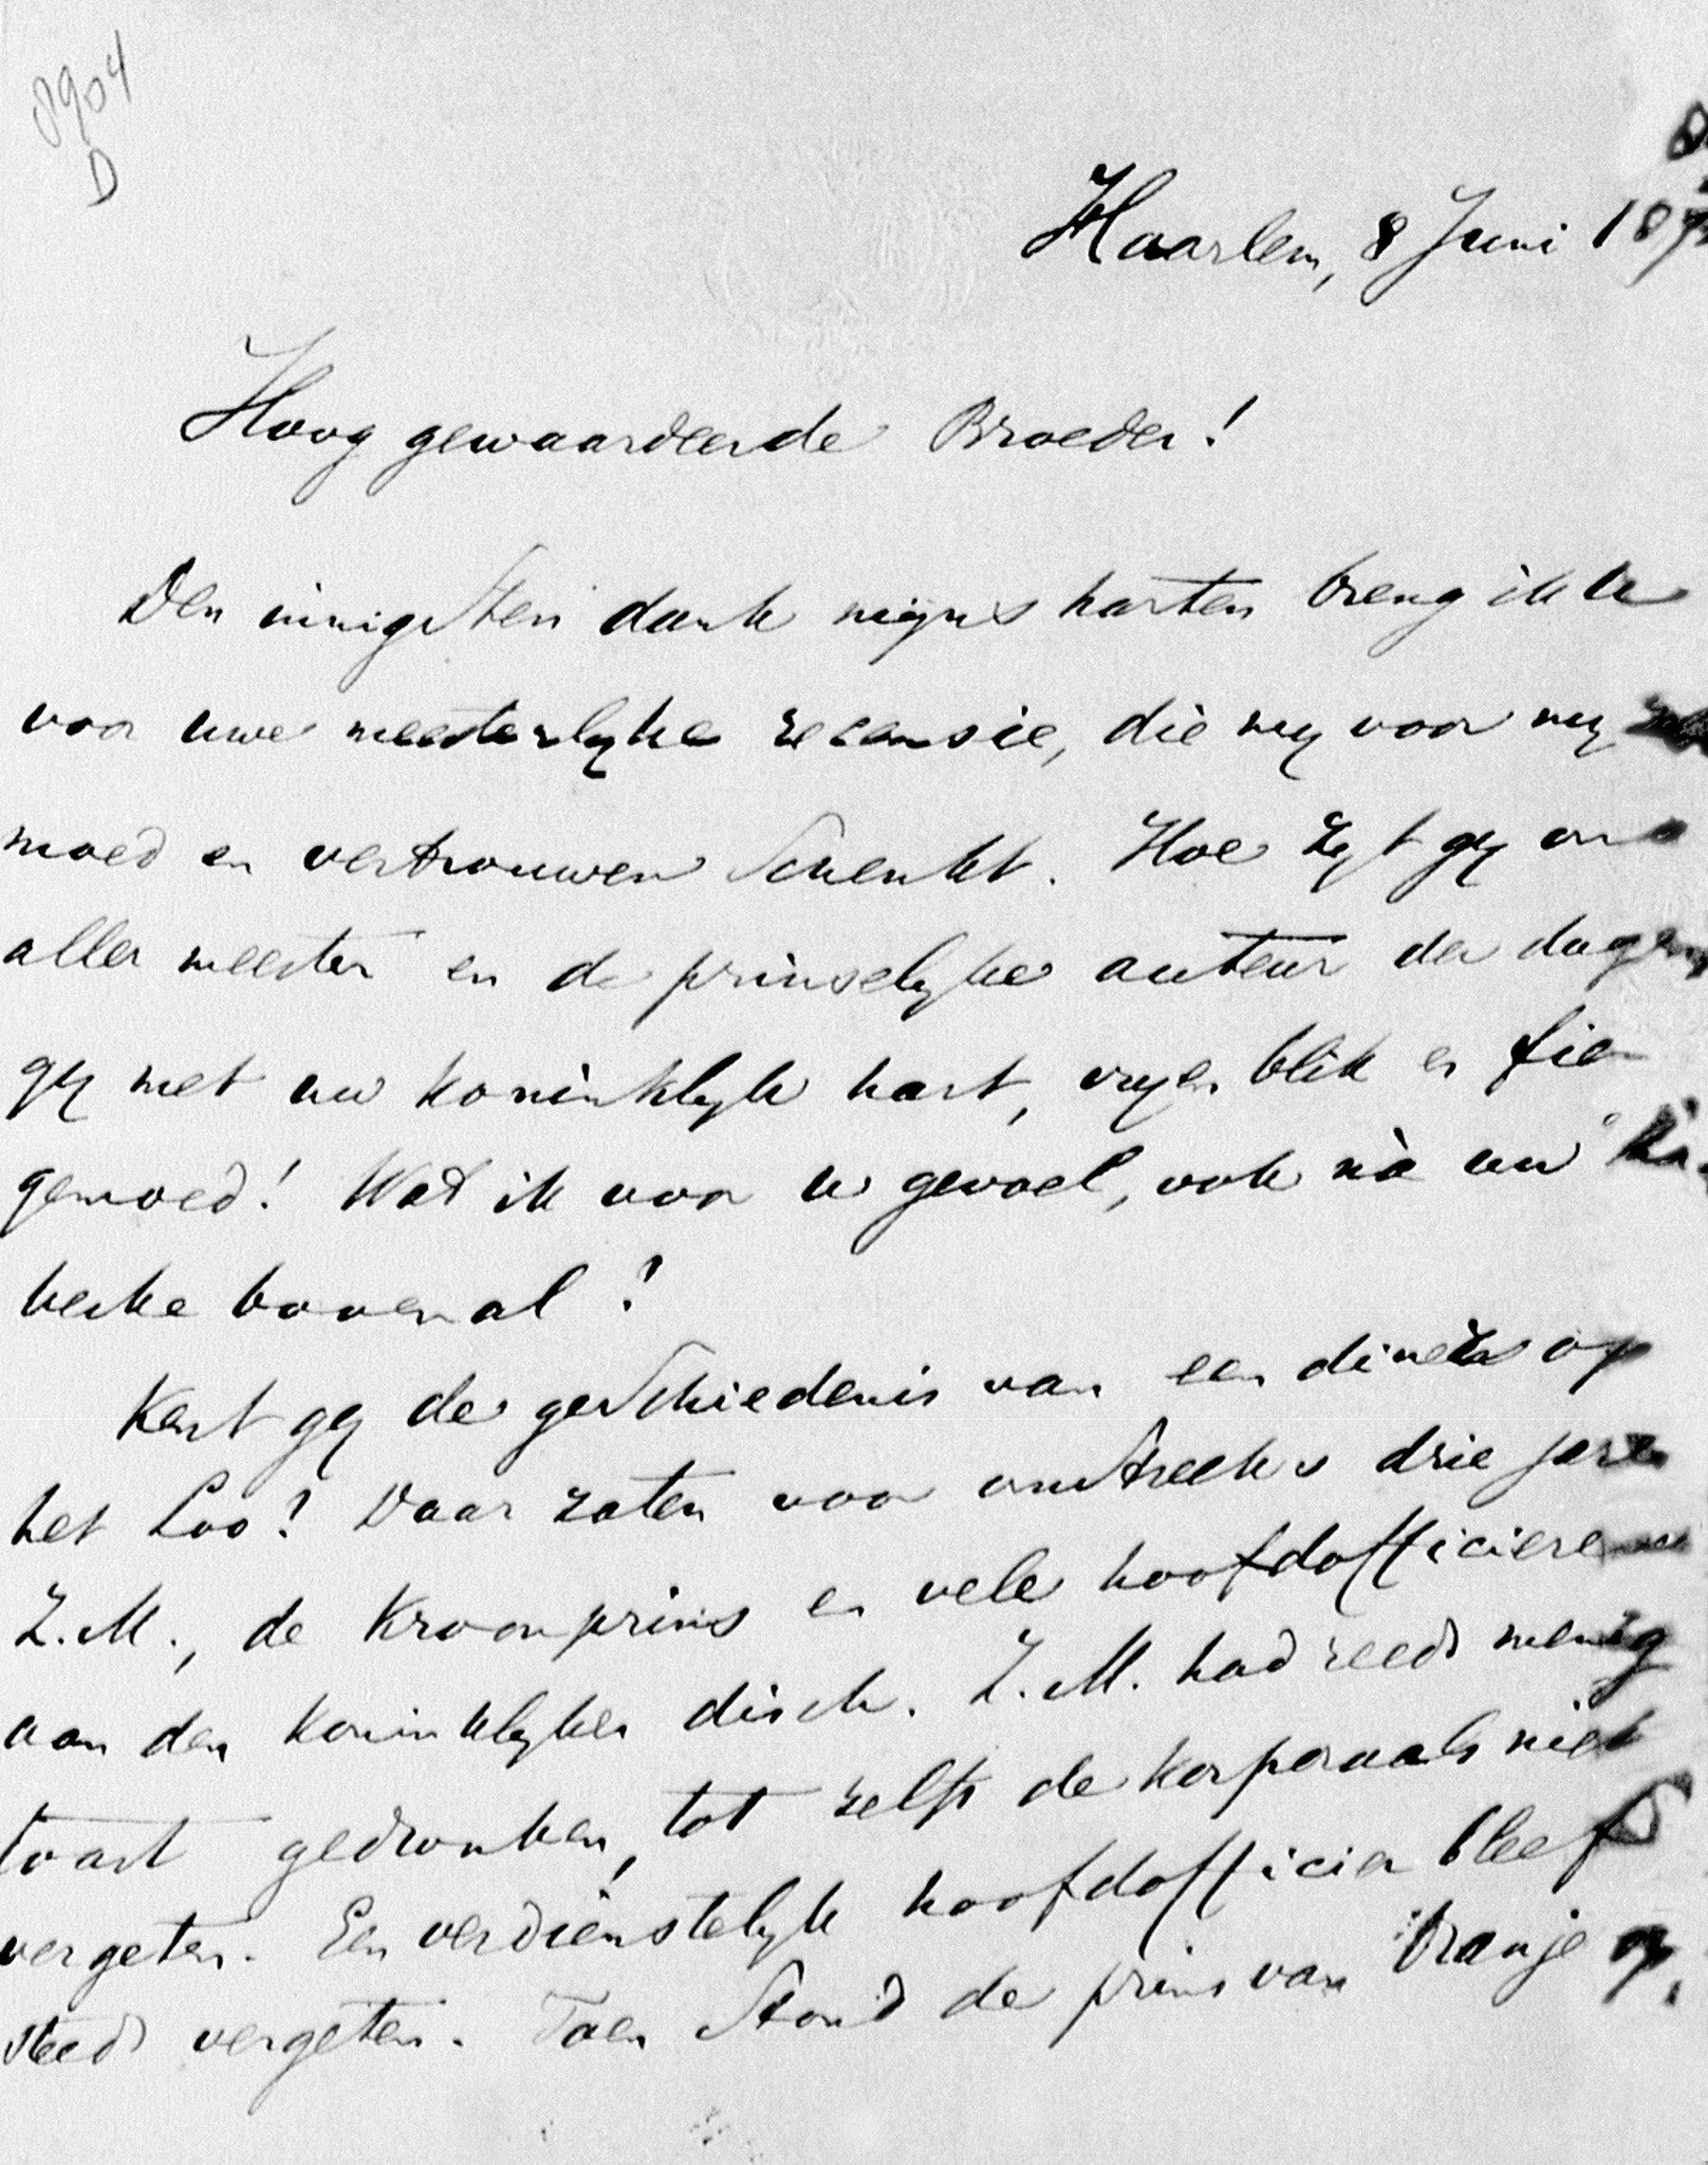 8904
D
Haarlem, 8 Juni 187
Hoog gewaardeerde Broeder!
Den innigsten dank mijns harten breng ik u
voor uwe meesterlyke recensie, die my voor my
moed en vertrouwen schenkt. Hoe zyt gy ons
aller meester en de prinselyke auteur der dagen
gy met uw koninklyk hart, vryen blik en fier
gemoed! Wat ik voor u gevoel, ook nà uw
beske bovenal!
Kent gy de geschiedenis van een diner op
het Loo? Daar zaten voor omstreeks drie jaren
Z.M., de Kroonprins en vele hoofdofficieren
aan den koninklyken disch. Z.M. had reeds menig
toast gedronken, tot zelfs de korporaals niet
vergeten. Een verdienstelyk hoofdofficier bleef
steeds vergeten. Toen stond de prins van Oranje op,